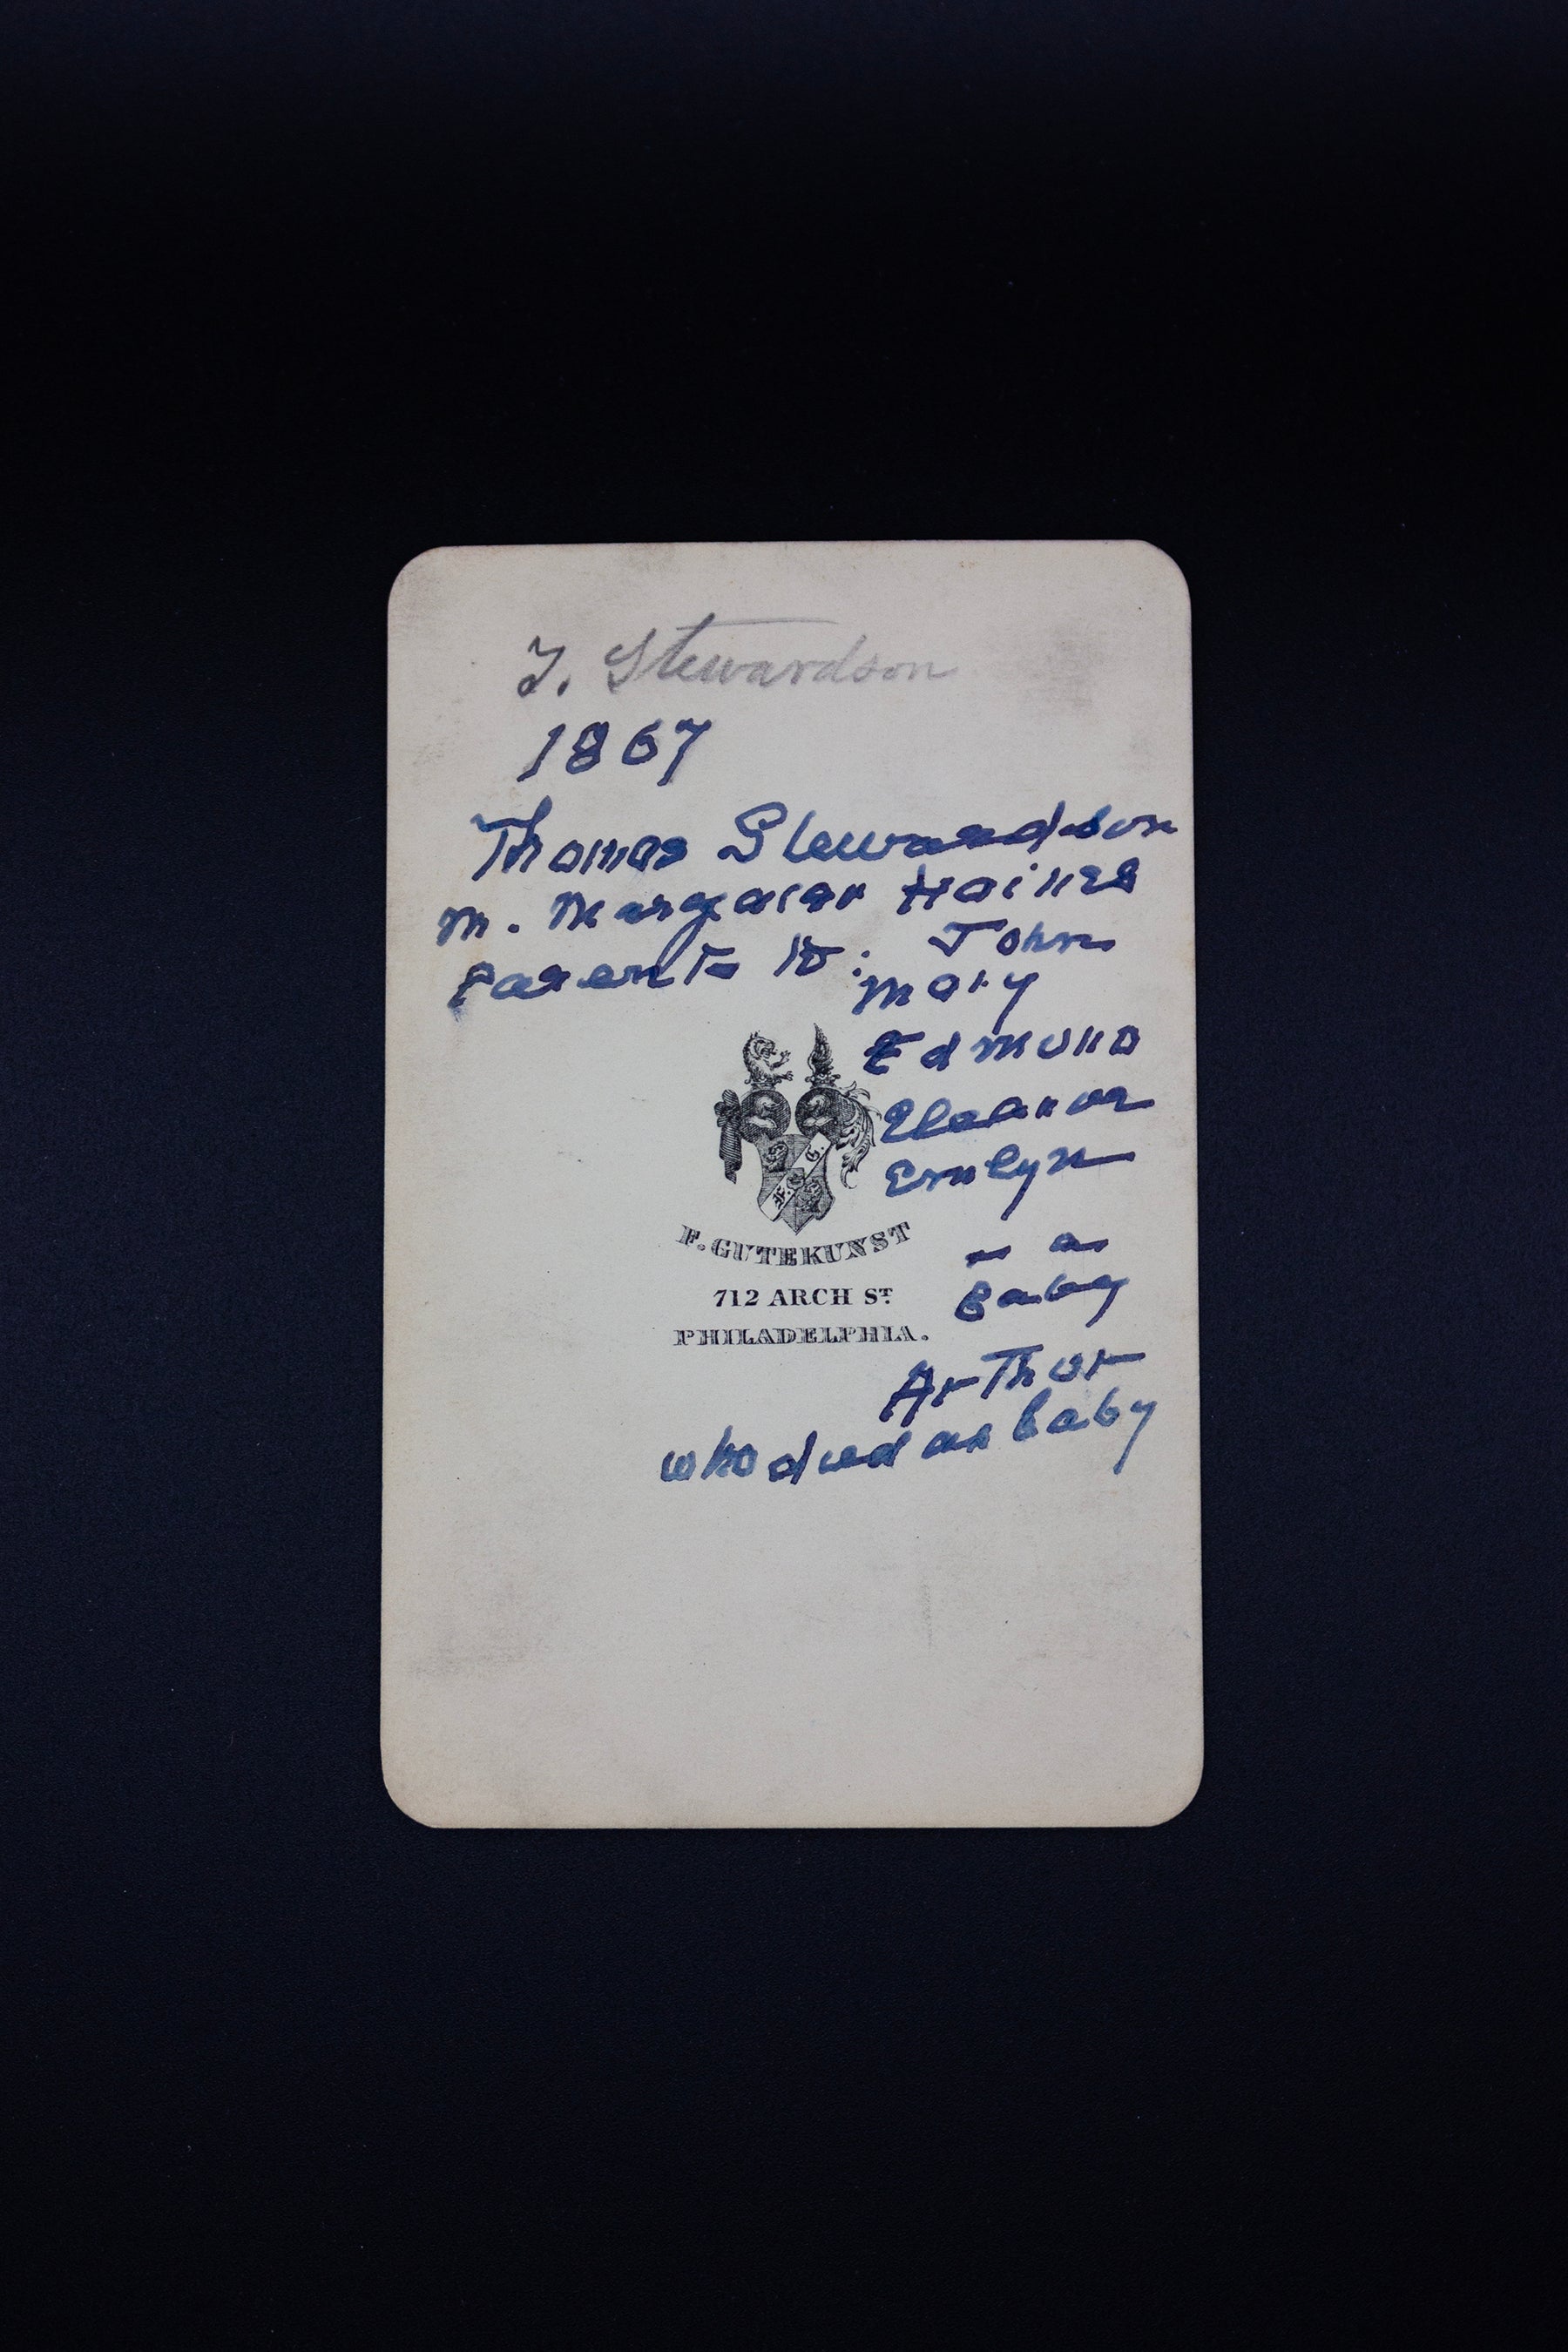 T. Stewardson
1867
Thomas Stewardson
m. Margaret Haines
Parents to: John
Mary
Edmund
Eleanor
Emlyn
F. G.
F. GUTEKUNST
712 ARCH ST.
PHILADELPHIA.
a
Baby
Arthur
who died as baby